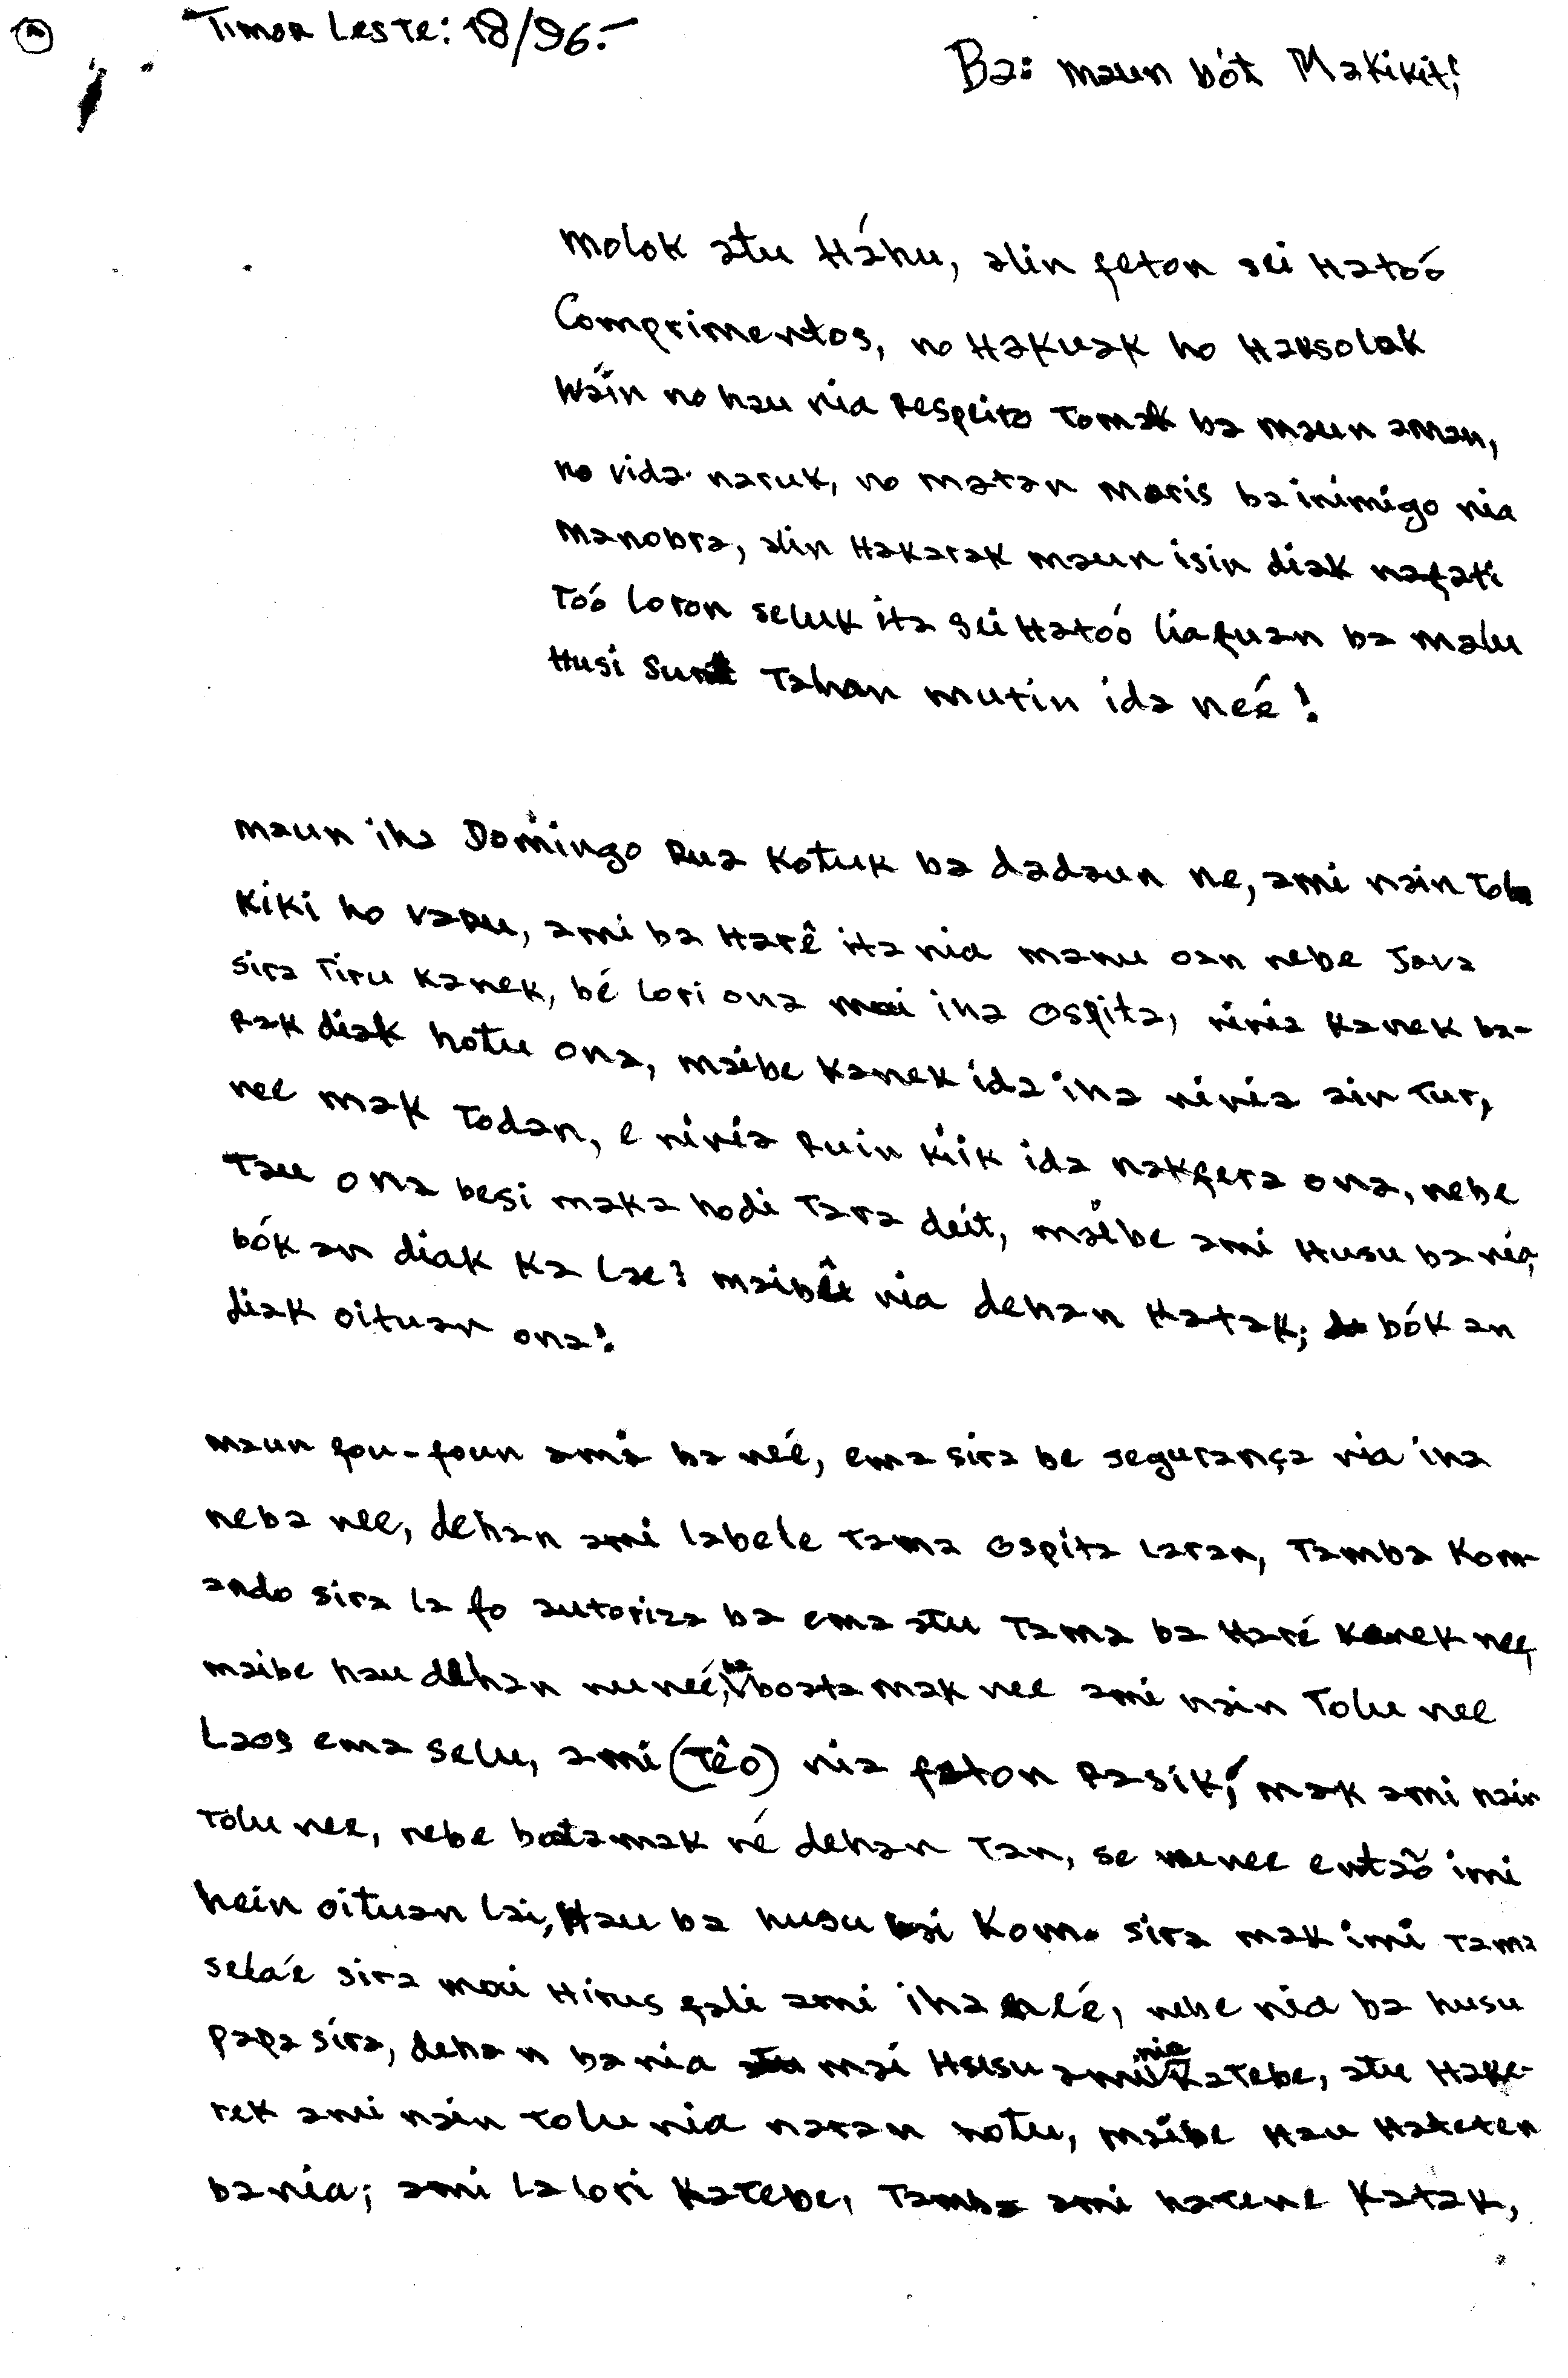 Timor Leste: 18/96.-
Ba: maun bót Makikit!
Molok atu Háhu, alin feton sei Hatoó
Comprimentos, no Hakuak ho Haksolok
Wáin no hau nia Respeito Tomak ba maun aman,
no vida naruk, no matan moris ba inimigo nia
manobra, alin Hakarak maun isin diak nafati
Toó loron seluk ita sei Hatoó liafuan ba malu
Husi Tahan mutin ida neé!
maun iha Domingo Rua Kotuk ba dadaun ne, ami nain Tolu
Kiki ho varu, ami ba Harê ita nia manu oan nebe Java
sira Tiru Kanek, bé lori ona mai iha Ospita, ninia Kanek ba-
Rak diak hotu ona, maibe Kanek ida iha ninia ain Tur,
nee mak Todan, e ninia Ruin kiik ida nakfera ona, nebe
Tau ona besi maka hodi Tara deit, maibe ami Husu ba nia,
bók an diak Ka lae? maibê nia dehan Katak; bók an
diak oituan ona!
maun fou-foun ami ba neé, ema sira be segurança nia iha
neba nee, dehan ami labele Tama Ospita Laran, Tamba Kom-
ando sira la fo autoriza ba ema atu Tama ba Haré Kanek nee,
maibe hau dehan nu neé, ba boata mak nee ami nain Tolu nee
Laos ema selu, ami (Têo) nia feton Rasik, mak ami nain
Tolu nee, nebe boatamak né dehan Tan, se nunee entaõ imi
hein oituan lai, Hau ba husu bai Kom. sira mak imi Tama
selaé sira mai Hirus fali ami iha neé, nebe nia ba husu
papa sira, dehan ba nia mai Husu ami nia Katebe, atu Hake-
rek ami nain Tolu nia naran hotu, maibe Hau Hateten
ba nia; ami la lori Katebe, Tamba ami hatene Katak,